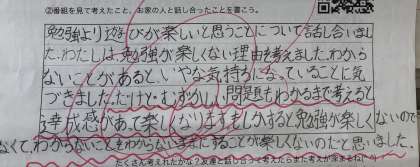 ②番組を見て考えたこと、お家の人と話し合ったことを書こう。
勉強より遊びが楽しいと思うことについて話し合いまし
た。わたしは、勉強が楽しくない理由を考えました。わから
ないことがあると、いやな気持ちになっていることに気
づきました。だけど、むずかしい問題もわかるまで考えると
達成感があって楽しくなります。もしかすると勉強が楽しくないので
なくて、わからないことをわからないままにすることが楽しくないのだと思いました。
たくさん考えれたかな?友達と話し合って考えたらまた考えが深まるね